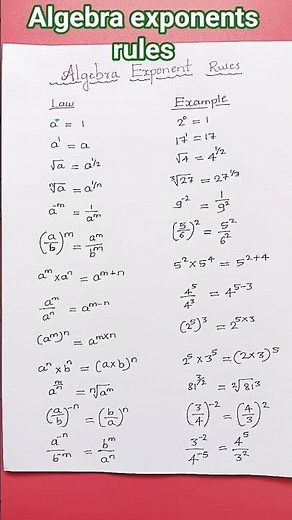 Algebra exponents
rules
Algebra Exponent Rules
Law Example
a⁰ = 1 2⁰ = 1
a¹ = a 17¹ = 17
√a = a^(1/2) √4 = 4^(1/2)
ⁿ√a = a^(1/n) ³√27 = 27^(1/3)
a^(-m) = 1/a^m 9^(-2) = 1/9²
(a/b)^m = a^m/b^m (5/6)² = 5²/6²
a^m × a^n = a^(m+n) 5² × 5⁴ = 5^(2+4)
a^m/a^n = a^(m-n) 4⁵/4³ = 4^(5-3)
(a^m)^n = a^(m×n) (2⁵)³ = 2^(5×3)
a^n × b^n = (a×b)^n 2⁵ × 3⁵ = (2×3)⁵
a^(m/n) = ⁿ√a^m 81^(3/2) = ²√81³
(a/b)^(-n) = (b/a)^n (3/4)^(-2) = (4/3)²
a^(-n)/b^(-m) = b^m/a^n 3^(-2)/4^(-5) = 4⁵/3²